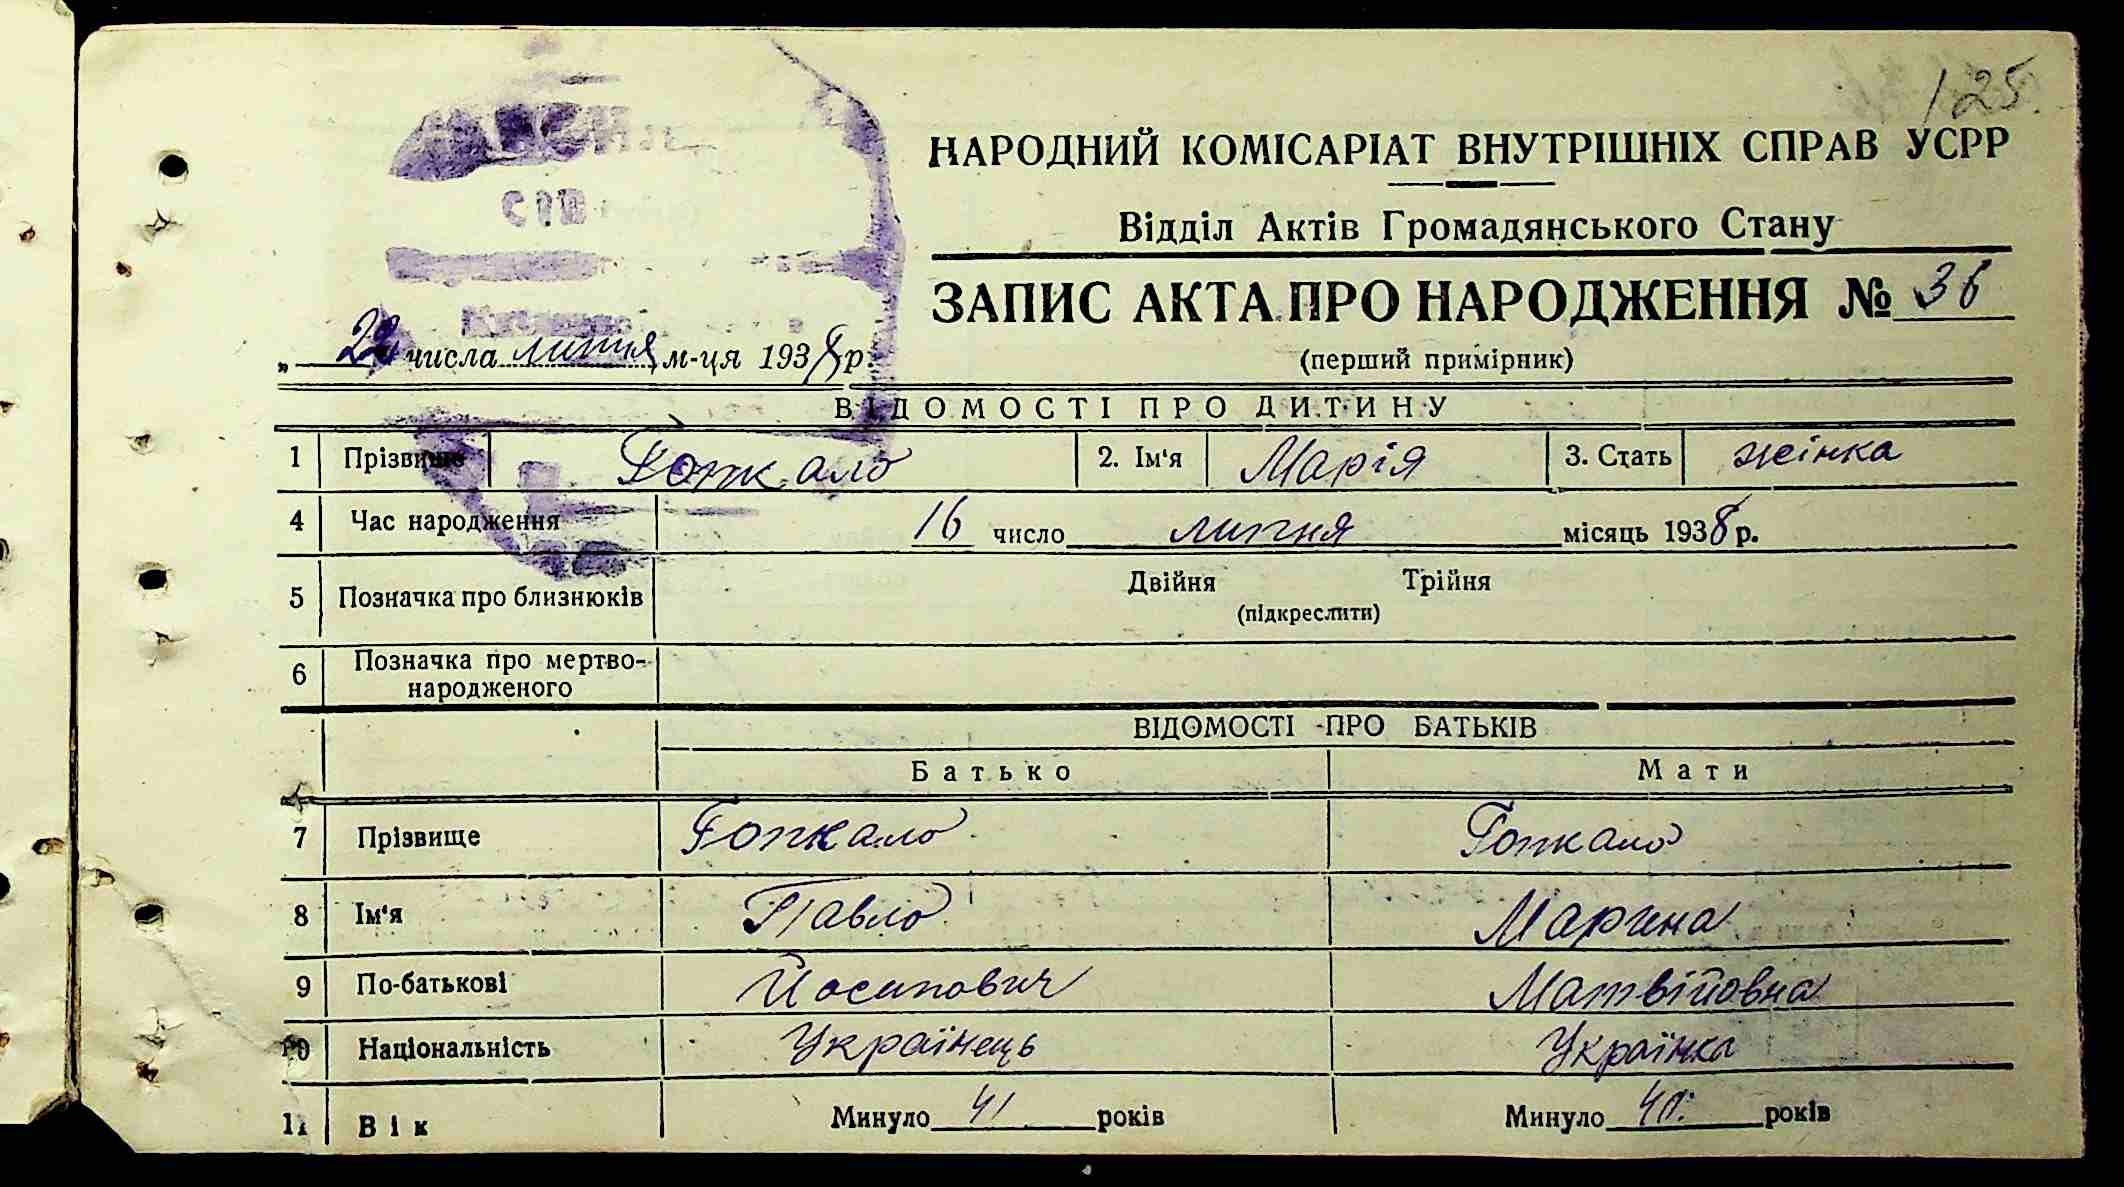 125.
НАРОДНИЙ КОМІСАРІАТ ВНУТРІШНІХ СПРАВ УСРР
Відділ Актів Громадянського Стану
ЗАПИС АКТА ПРО НАРОДЖЕННЯ № 36
„ 22 числа липня м-ця 1938 р.
(перший примірник)
ВІДОМОСТІ ПРО ДИТИНУ
1 Прізвище Гопкало 2. Ім'я Марія 3. Стать жінка
4 Час народження 16 число липня місяць 1938 р.
5 Позначка про близнюків Двійня Трійня
(підкреслити)
6 Позначка про мертво-
народженого
ВІДОМОСТІ ПРО БАТЬКІВ
Батько Мати
7 Прізвище Гопкало Гопкало
8 Ім'я Павло Марина
9 По-батькові Йосипович Матвійовна
10 Національність Українець Українка
11 Вік Минуло 41 років Минуло 40 років